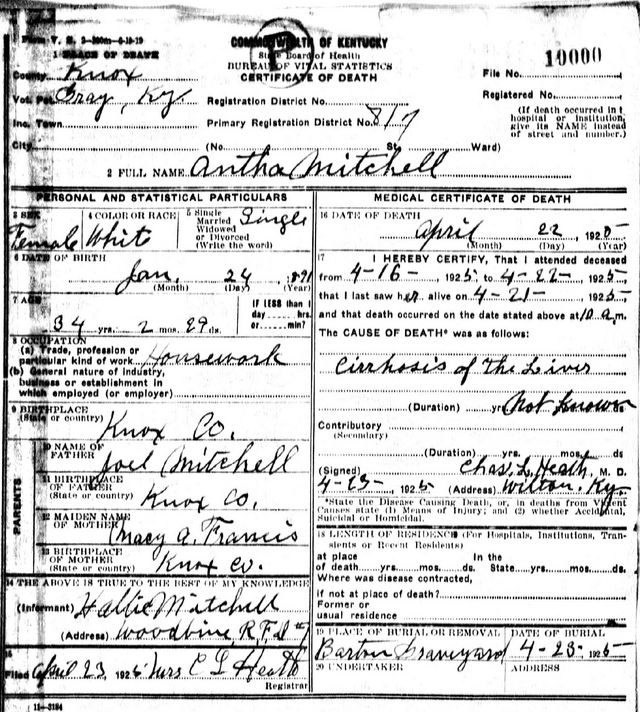 Form V. S. 2-300m-6-18-19
1 PLACE OF DEATH
COMMONWEALTH OF KENTUCKY
State Board of Health
BUREAU OF VITAL STATISTICS
CERTIFICATE OF DEATH
File No. 10000
County Knox
Vot. Pct. Gray, Ky
Registration District No.
Registered No.
Inc. Town
Primary Registration District No. 817
(If death occurred in
hospital or institution,
give its NAME instead
of street and number.)
City (No St. Ward)
2 FULL NAME Antha Mitchell
PERSONAL AND STATISTICAL PARTICULARS
3 SEX Female
4 COLOR OR RACE White
5 Single
Married
Widowed
or Divorced
(Write the word) Single
6 DATE OF BIRTH
Jan. 24, 1891
(Month) (Day) (Year)
7 AGE
34 yrs. 2 mos. 29 ds.
IF LESS than 1
day hrs.
or min?
8 OCCUPATION
(a) Trade, profession or
particular kind of work Housework
(b) General nature of industry,
business or establishment in
which employed (or employer)
9 BIRTHPLACE
(State or country) Knox Co.
PARENTS
10 NAME OF
FATHER Joel Mitchell
11 BIRTHPLACE
OF FATHER
(State or country) Knox Co.
12 MAIDEN NAME
OF MOTHER Macy A. Francis
13 BIRTHPLACE
OF MOTHER
(State or country) Knox Co.
14 THE ABOVE IS TRUE TO THE BEST OF MY KNOWLEDGE
(Informant) Hallie Mitchell
(Address) Woodbine R F D #1
15
Filed April 23 1925 Mrs C L Heath
Registrar
11-3184
MEDICAL CERTIFICATE OF DEATH
16 DATE OF DEATH
April 22, 1925
(Month) (Day) (Year)
17 I HEREBY CERTIFY, That I attended deceased
from 4-16- 1925 to 4-22- 1925,
that I last saw her alive on 4-21- 1925-
and that death occurred on the date stated above at 10 a.m.
The CAUSE OF DEATH* was as follows:
Cirrhosis of The Liver
(Duration) yrs Not Known ds
Contributory
(Secondary)
(Duration) yrs. mos. ds
(Signed) Chas. L. Heath, M. D.
4-23- 1925 (Address) Wilton, Ky.
*State the Disease Causing Death, or, in deaths from Violent
Causes state (1) Means of Injury; and (2) whether Accidental,
Suicidal or Homicidal.
18 LENGTH OF RESIDENCE (For Hospitals, Institutions, Tran-
sients or Recent Residents)
at place In the
of death yrs. mos. ds. State yrs. mos. ds.
Where was disease contracted,
if not at place of death?
Former or
usual residence
19 PLACE OF BURIAL OR REMOVAL
Barton Graveyard
DATE OF BURIAL
4-23- 1925
20 UNDERTAKER
ADDRESS